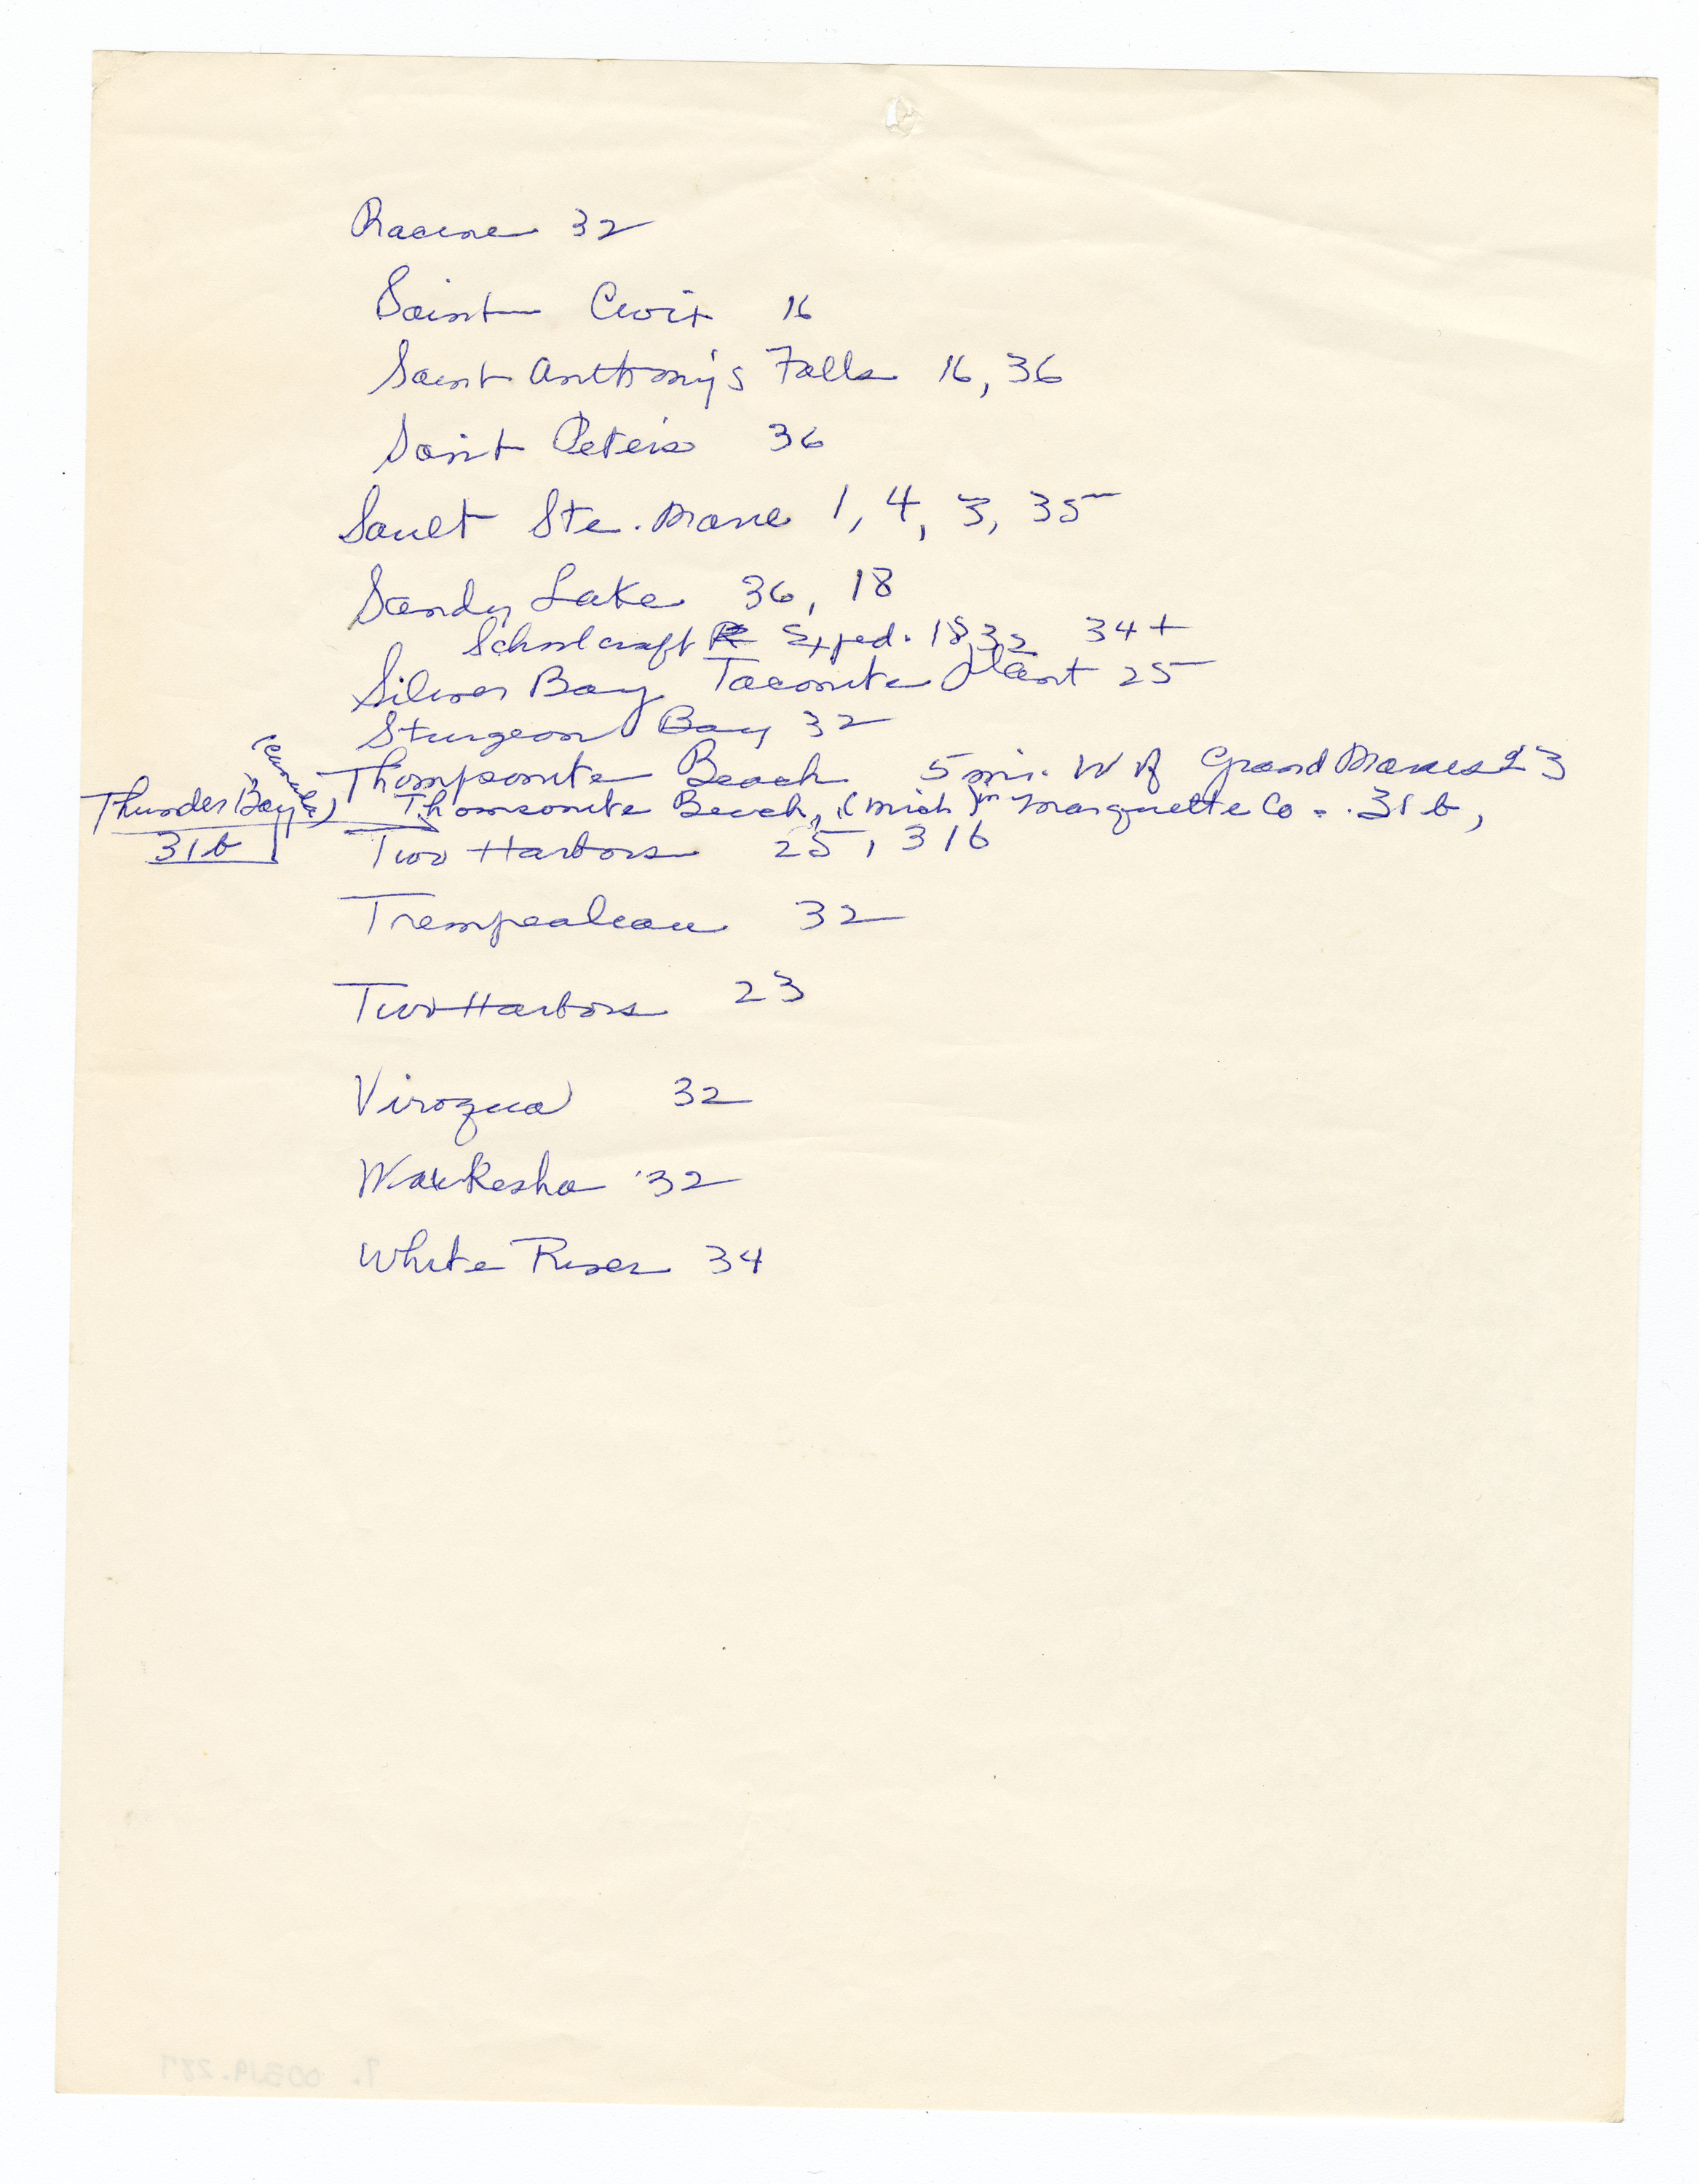 Racine 32
Saint Croix 16
Saint Anthony's Falls 16, 36
Saint Peters 36
Sault Ste. Marie 1, 4, 3, 35
Sandy Lake 36, 18
Schoolcraft Exped. 1832 34+
Silver Bay Taconite Plant 25
Sturgeon Bay 32
Thompsonite Beach 5 mi. W of Grand Marais 23
Thunder Bay (Canada) 31b
Thomsonite Beach, (Mich) in Marquette Co. 31b,
Two Harbors 25, 31b
Trempealeau 32
Two Harbors 23
Viroqua 32
Waukesha 32
White River 34